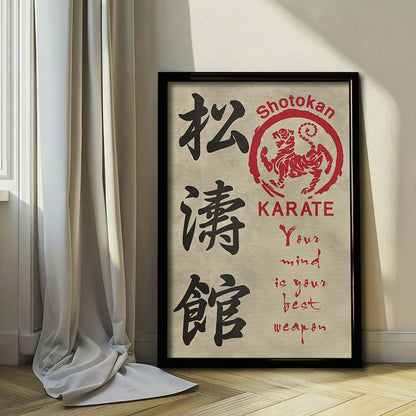 松
濤
館
Shotokan
KARATE
Your
mind
is your
best
weapon